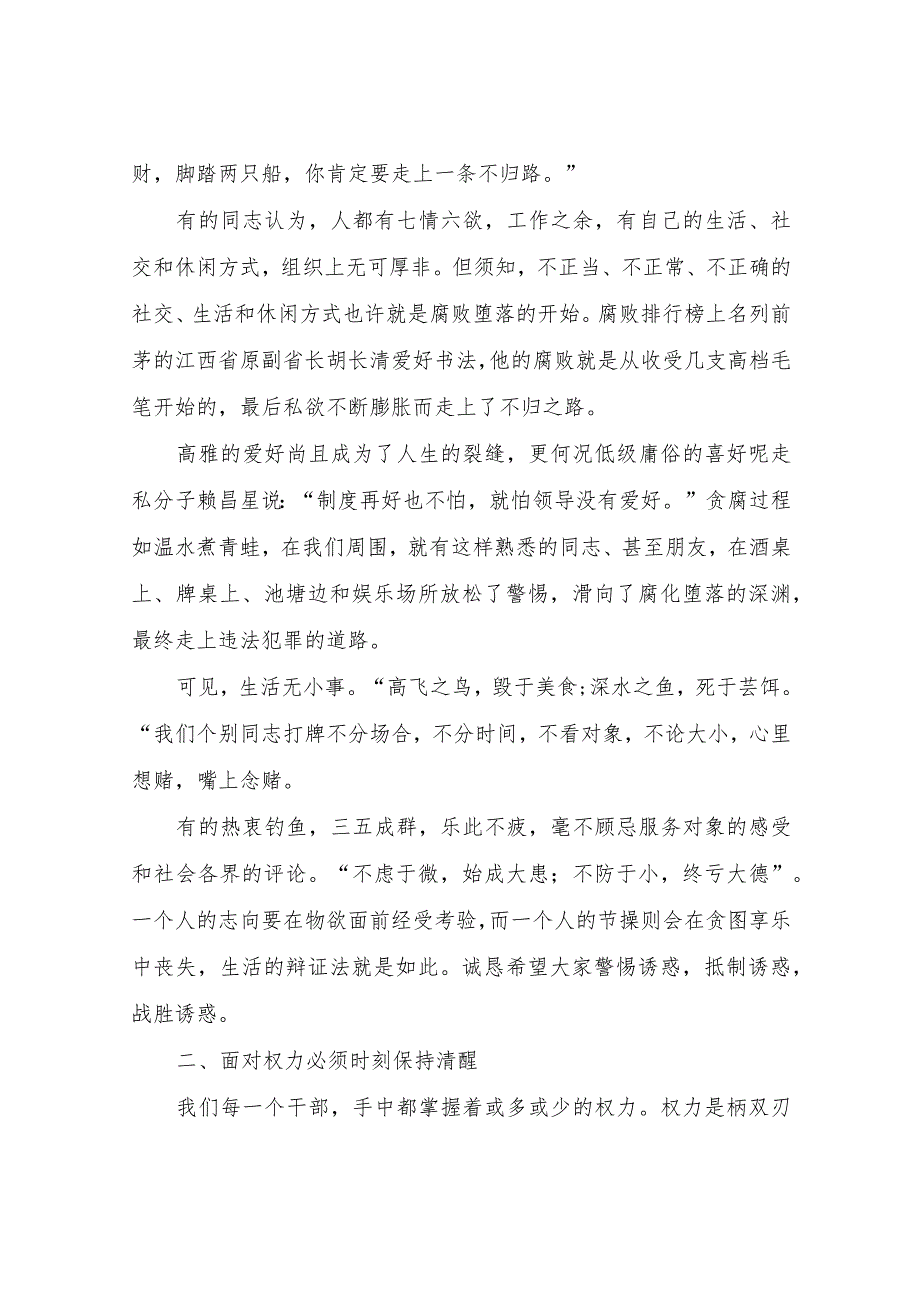 财，脚踏两只船，你肯定要走上一条不归路。”
有的同志认为，人都有七情六欲，工作之余，有自己的生活、社
交和休闲方式，组织上无可厚非。但须知，不正当、不正常、不正确的
社交、生活和休闲方式也许就是腐败堕落的开始。腐败排行榜上名列前
茅的江西省原副省长胡长清爱好书法，他的腐败就是从收受几支高档毛
笔开始的，最后私欲不断膨胀而走上了不归之路。
高雅的爱好尚且成为了人生的裂缝，更何况低级庸俗的喜好呢走
私分子赖昌星说：“制度再好也不怕，就怕领导没有爱好。”贪腐过程
如温水煮青蛙，在我们周围，就有这样熟悉的同志、甚至朋友，在酒桌
上、牌桌上、池塘边和娱乐场所放松了警惕，滑向了腐化堕落的深渊，
最终走上违法犯罪的道路。
可见，生活无小事。“高飞之鸟，毁于美食;深水之鱼，死于芸饵。
“我们个别同志打牌不分场合，不分时间，不看对象，不论大小，心里
想赌，嘴上念赌。
有的热衷钓鱼，三五成群，乐此不疲，毫不顾忌服务对象的感受
和社会各界的评论。“不虑于微，始成大患；不防于小，终亏大德”。
一个人的志向要在物欲面前经受考验，而一个人的节操则会在贪图享乐
中丧失，生活的辩证法就是如此。诚恳希望大家警惕诱惑，抵制诱惑，
战胜诱惑。
二、面对权力必须时刻保持清醒
我们每一个干部，手中都掌握着或多或少的权力。权力是柄双刃